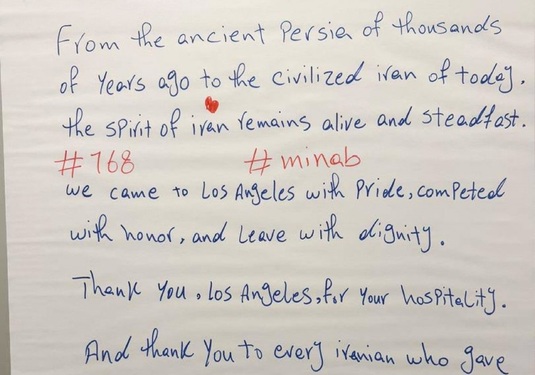 From the ancient Persia of thousands
of Years ago to the civilized iran of today.
the spirit of iran remains alive and steadfast.
#168 #minab
we came to Los Angeles with Pride, competed
with honor, and Leave with dignity.
Thank You, Los Angeles, for Your hospitality.
And thank You to every iranian who gave